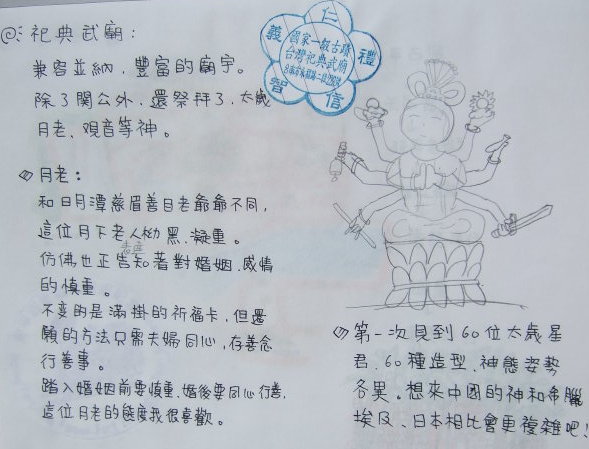 祀典武廟:
兼容並納，豐富的廟宇。
除了關公外，還祭拜了，太歲
月老、观音等神。
月老:
和日月潭慈眉善目老爺爺不同，
這位月下老人黝黑、凝重。
仿佛也正告知著對婚姻、感情
的慎重。
不變的是滿掛的祈福卡，但還
願的方法只需夫婦同心，存善念
行善事。
踏入婚姻前要慎重、婚後要同心行善，
這位月老的態度我很喜歡。
仁
義
禮
智
信
國家一級古蹟
台灣祀典武廟
第一次見到60位太歲星
君、60種造型、神態姿勢
各異。想來中國的神和希臘
埃及、日本相比會更複雜吧!